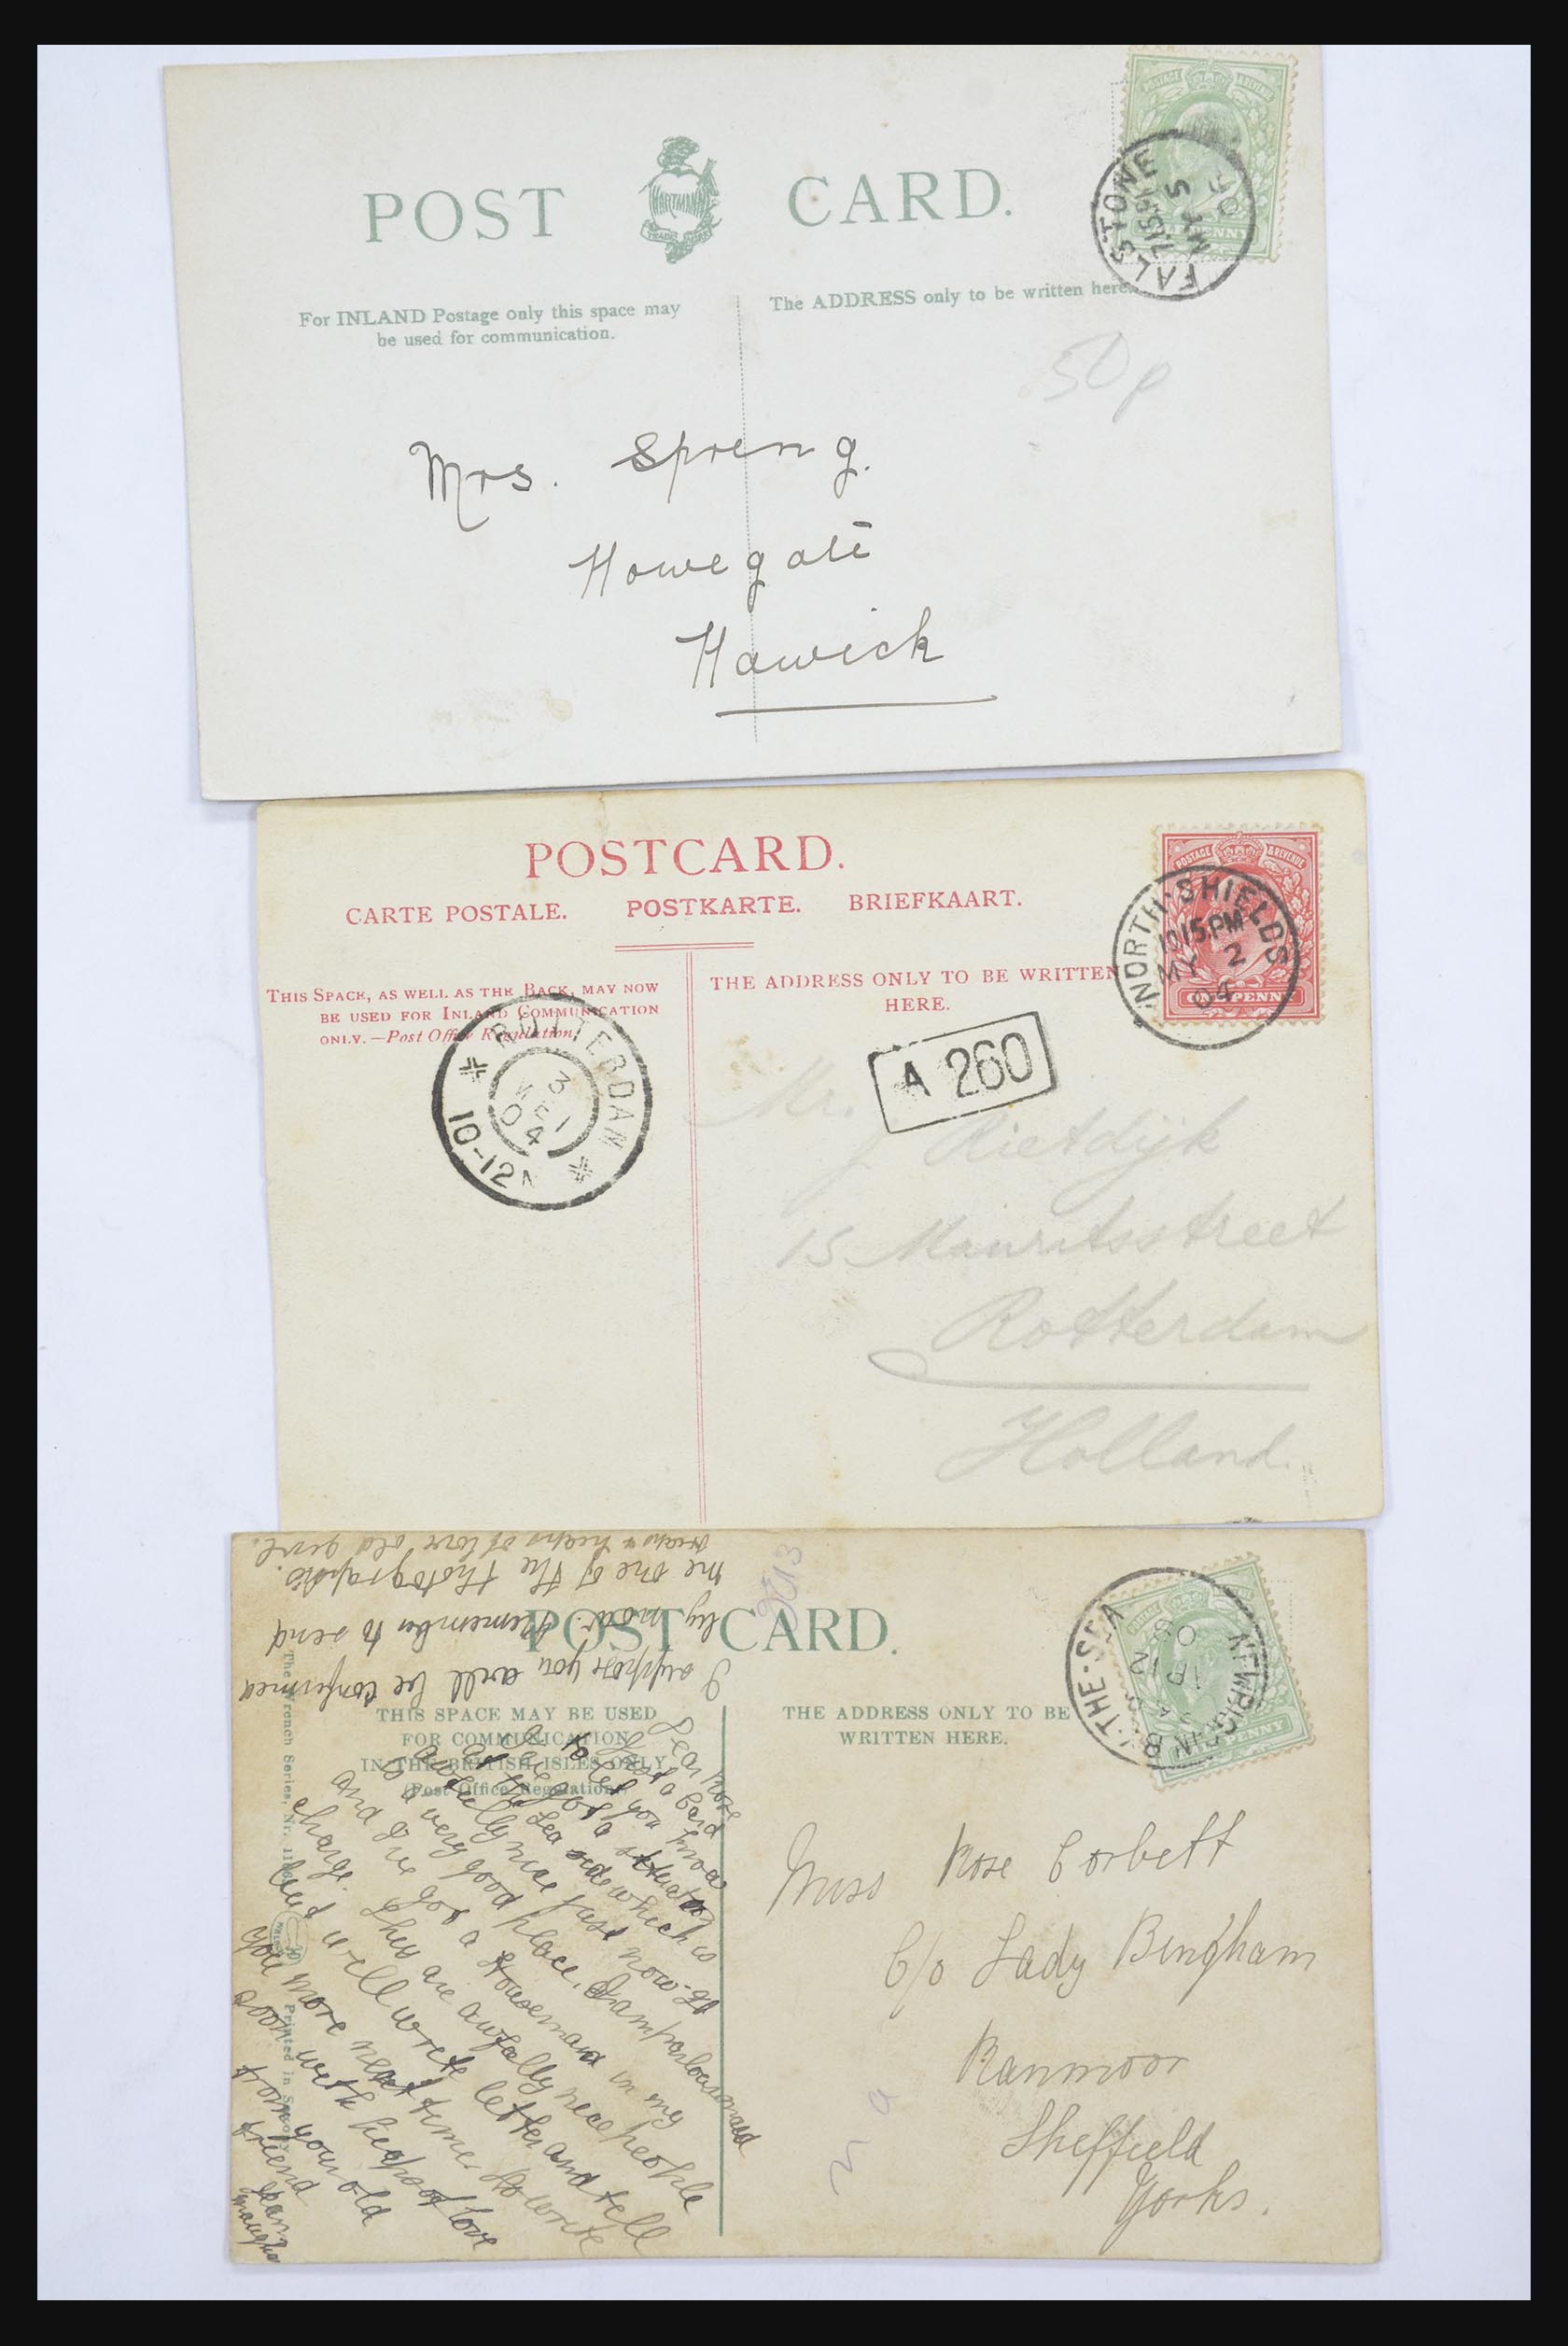 POST CARD.
HARTMANN
TRADE MARK
POSTAGE & REVENUE
HALFPENNY
FALSTONE
7.15 PM
MY 5
06
For INLAND Postage only this space may
be used for communication.
The ADDRESS only to be written here.
50p
Mrs. Spreng.
Howegate
Hawick
POSTCARD.
CARTE POSTALE. POSTKARTE. BRIEFKAART.
POSTAGE & REVENUE
ONE PENNY
NORTH-SHIELDS
10.15.PM
MY 2
04
THIS SPACE, AS WELL AS THE BACK, MAY NOW
BE USED FOR INLAND COMMUNICATION
ONLY.—Post Office Regulation.
THE ADDRESS ONLY TO BE WRITTEN
HERE.
ROTTERDAM
3
MEI
04
10-12
A 260
Mr.
J Rietdijk
15 Mauritsstreet
Rotterdam
Holland.
POST CARD.
THIS SPACE MAY BE USED
FOR COMMUNICATION
IN THE BRITISH ISLES ONLY
(Post Office Regulation).
THE ADDRESS ONLY TO BE
WRITTEN HERE.
NEWBIGGIN B.-THE-SEA
08
The Wrench Series, Nr.
Printed in Saxony
Dear Rose
Just a Card
to let you know
I've got a situation
at the Sea side which is
awfully nice just now. It
is a very good place, I am parlourmaid
and I've got a Housemaid in my
charge. They are awfully nice people
but will write letter and tell
you more next time. Do write
soon with heaps of love
from your old
friend
I suppose you will be confirmed
by now. Remember to send
me one of the photographs.
heaps of love old girl.
Miss Rose Corbett
C/o Lady Bingham
Ranmoor
Sheffield
Yorks.